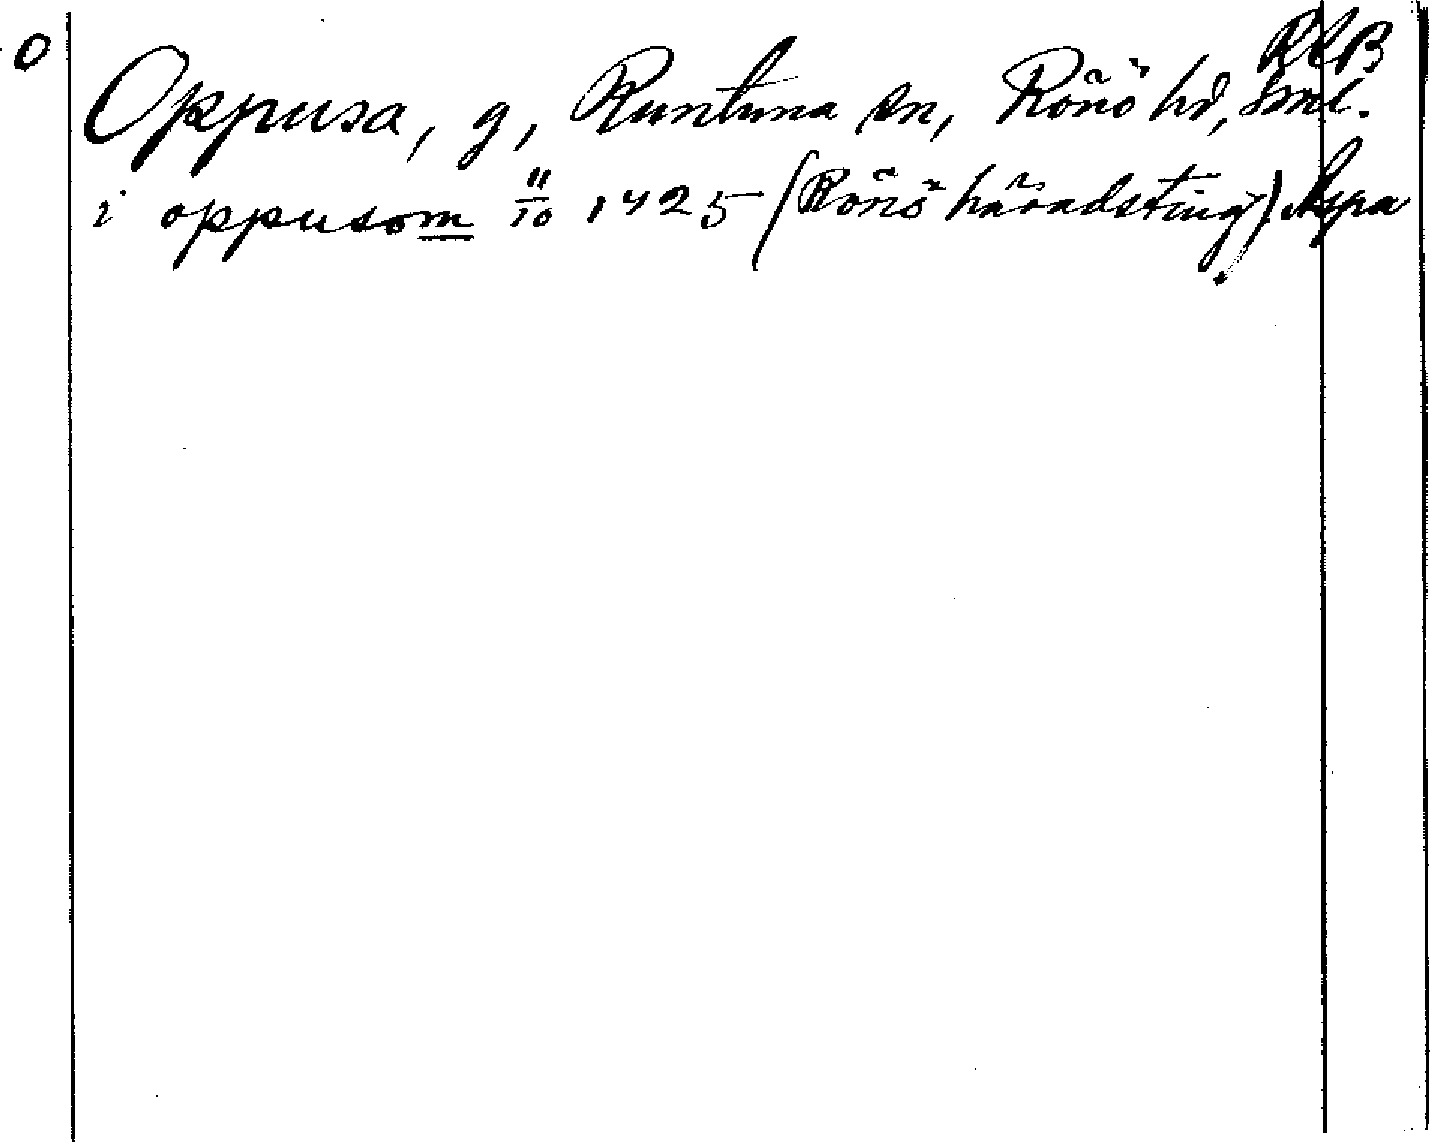 O
RLB
Oppusa, g, Runtuna sn, Rönö hd, Sml.
i oppusom 11/10 1425 (Rönö häradsting). Aspa